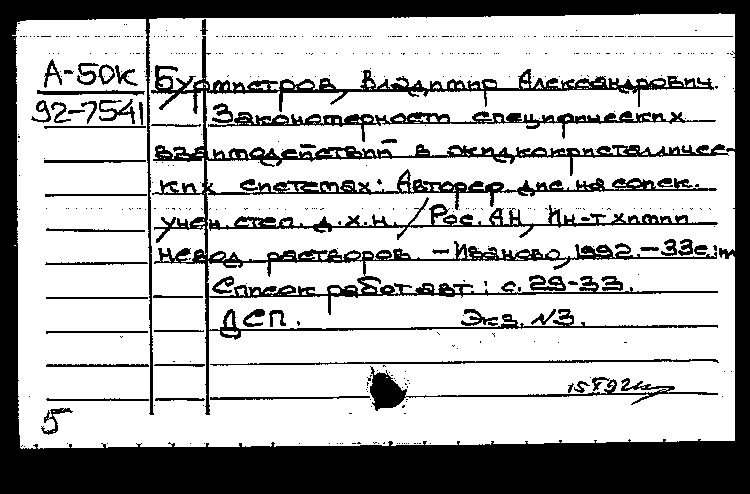 А-50к
92-7541
Бурмистров, Владимир Александрович.
Закономерности специфических
взаимодействий в жидкокристалличес-
ких системах: Автореф. дис. на соиск.
учен. степ. д.х.н. / Рос. АН, Ин-т химии
невод. растворов. - Иваново, 1992. - 33с.: и
Список работ авт.: с. 29-33.
ДСП. Экз. N3.
5